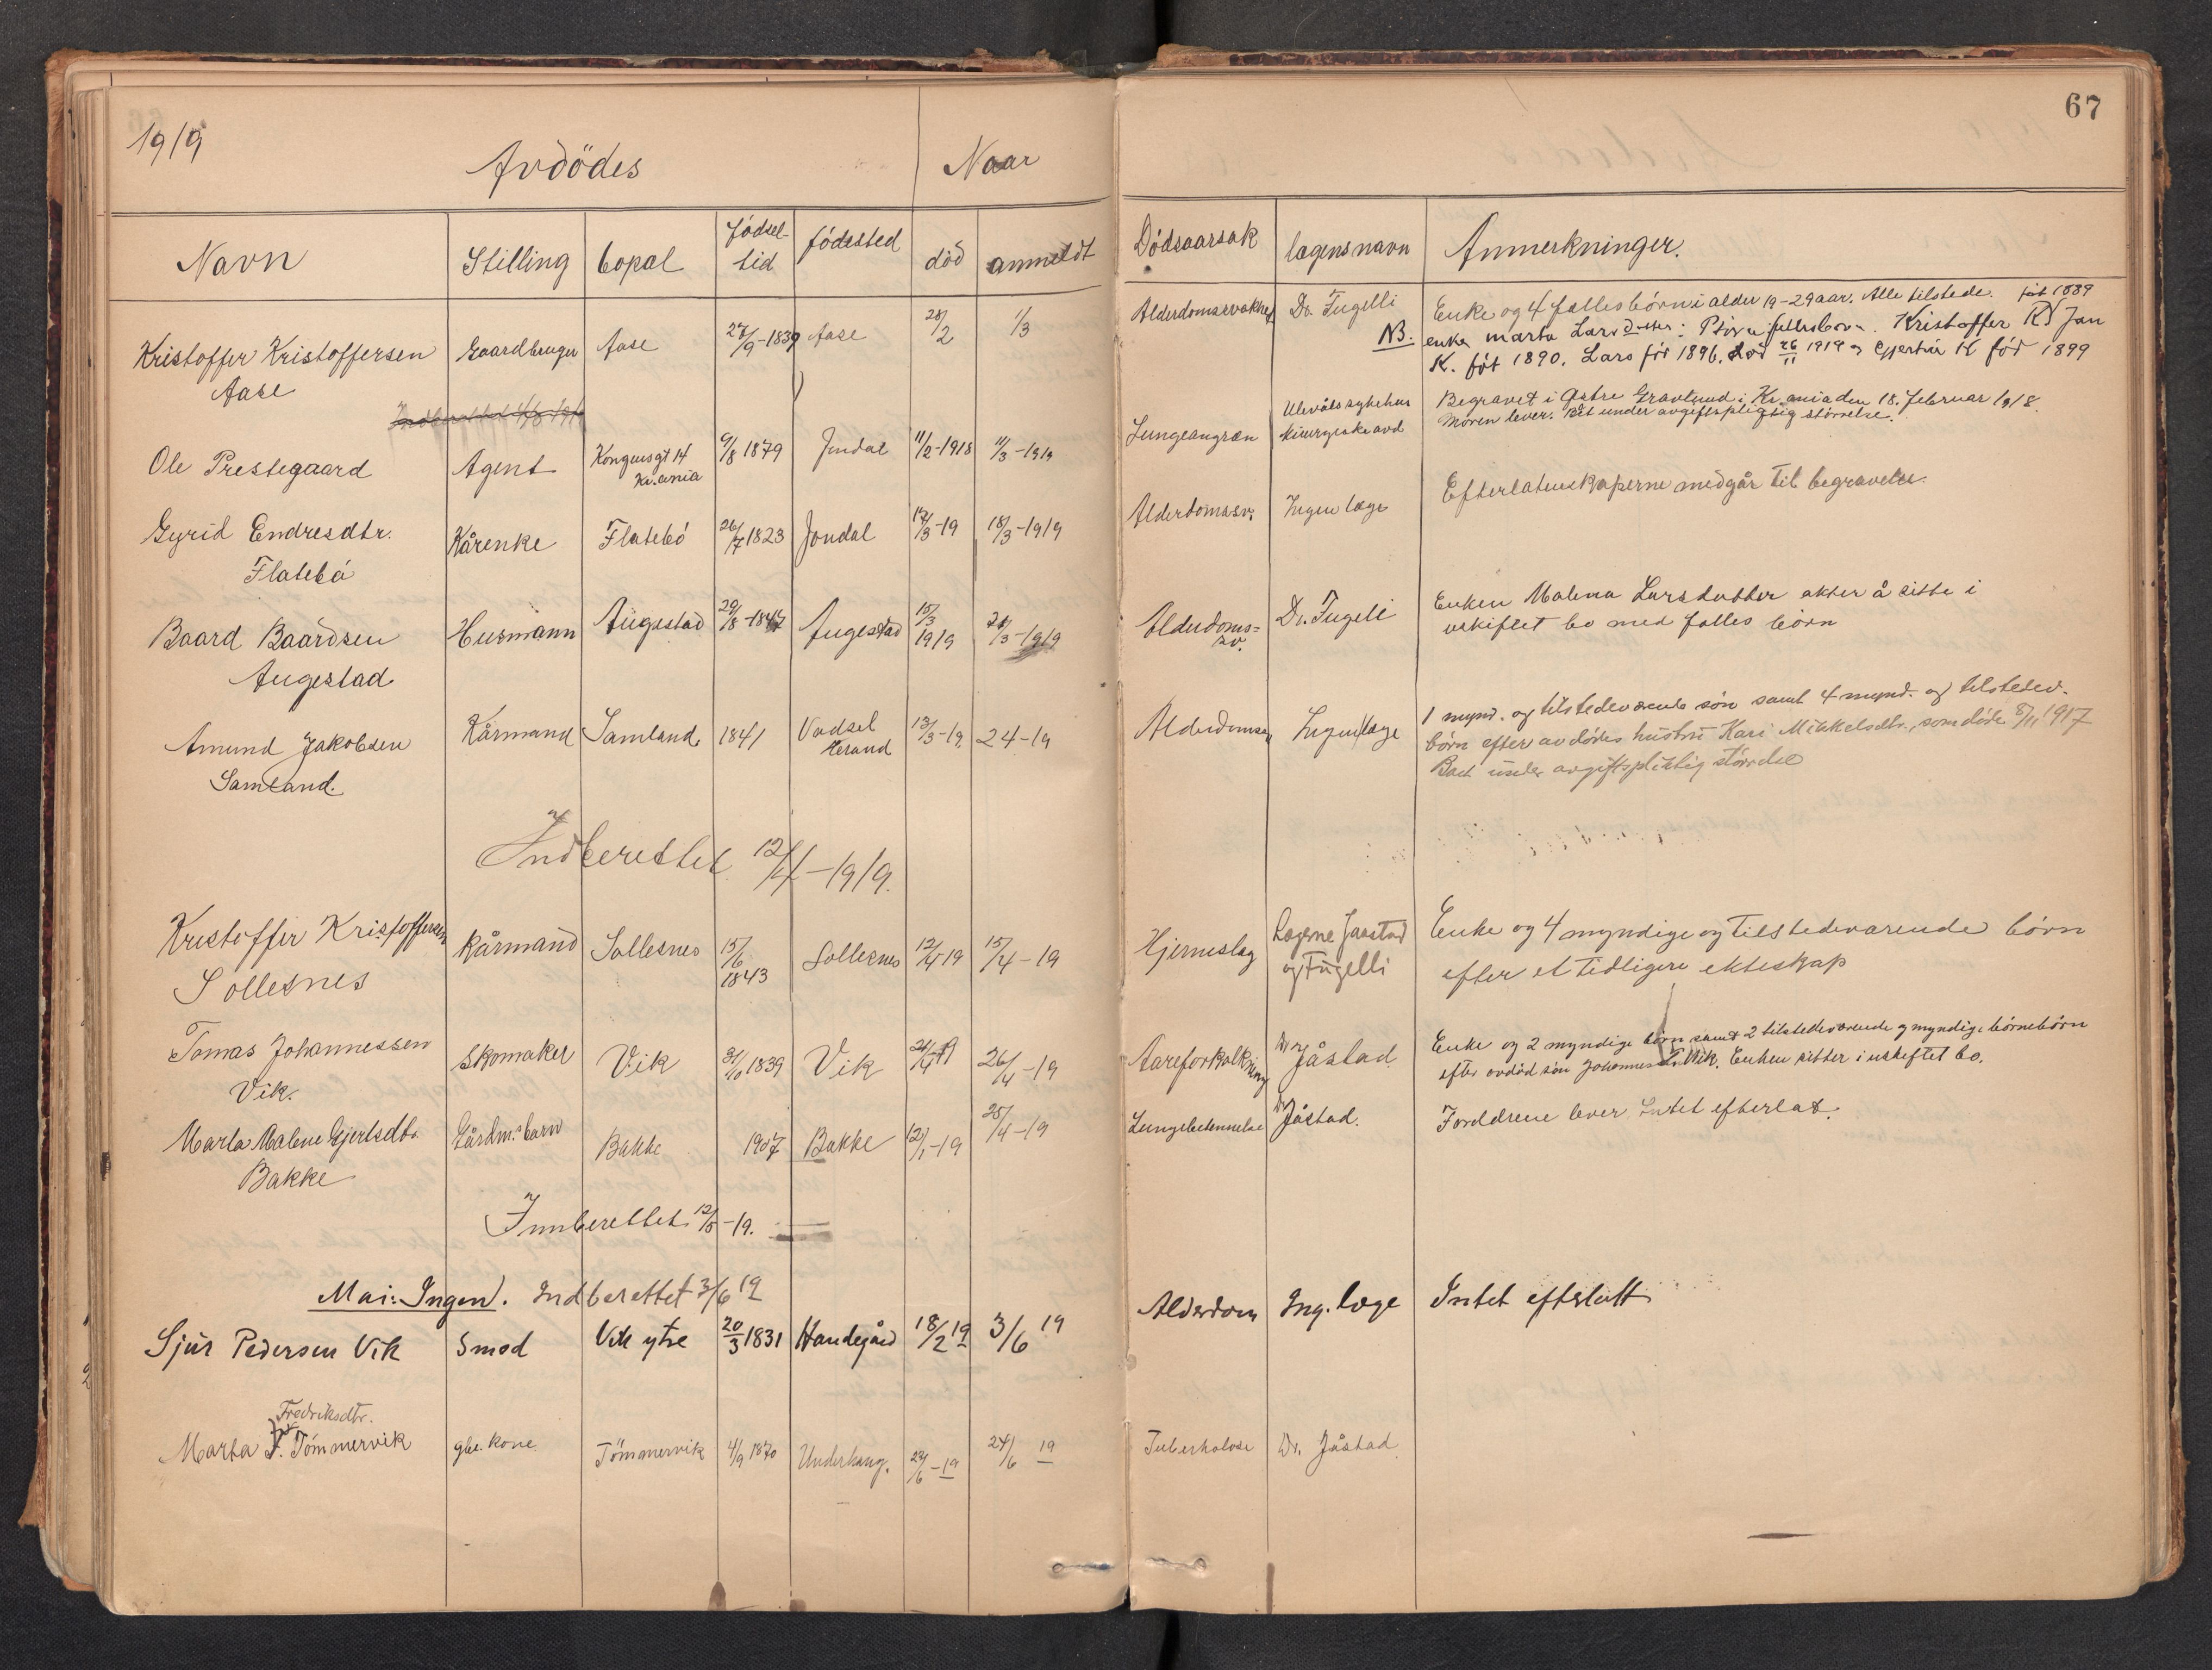 1919
67
Avdödes
Naar
Navn
Stilling
bopæl
fødsel-
tid
fødested
död
anmeldt
Dödsaarsak
lægens navn
Anmerkninger.
Kristoffer Kristoffersen
Aase
Gaardbruger
Aase
27/9-1839
Aase
28/2
1/3
Alderdomssvakhet
Dr. Fugelli
Enke og 4 fælles börn i alder 19-29 aar. Alle tilstede. föt 1889
NB. enke Marta Larsdatter: fellesbörn. Kristoffer K Jan
K. föt 1890. Lars föt 1896. död 26/11 1919 og Gjertrü K föd 1899
Ole Prestegaard
Agent
Kongensgt 14
Kr.ania
9/8 1879
Jondal
11/2-1918
11/3-1919
Lungeangræn
Ulevåls sykehus
kirurgiske avd
Begravet i Östre Gravlund i Kr.ania den 18. februar 1918.
Moren lever. Bet under avgiftspligtig störrelse.
Gyrid Endresdtr.
Flatebö
Kårenke
Flatebö
26/7 1823
Jondal
17/3-19
18/3-1919
Alderdomssv.
Ingen læge
Efterlatenskaperne medgår til begravelse.
Baard Baardsen
Augestad
Husmann
Augestad
29/8-1847
Augestad
15/3
1919
21/3-1919
Alderdoms=
sv.
Dr. Fugeli
Enken Malena Larsdatter akter å sitte i
uskiftet bo med fælles börn
Amund Jakobsen
Samland.
Kårmand
Samland.
1841
Vadsel
Herand
13/3-19.
24-19
Alderdomssv
Ingen læge
1 mynd. og tilstedeværende sön samt 4 mynd. og tilstedev.
börn efter avdödes hustru Kari Mikkelsdtr., som döde 8/11 1917
Boet under avgiftspliktig störrelse
Indberettet 12/4-1919.
Kristoffer Kristoffersen
Sollesnes
Kårmand
Sollesnes
15/6
1843
Sollesnes
12/4 19
15/4-19
Hjerneslag
Lægerne Jaastad
og Fugelli
Enke og 4 myndige og tilstedeværende börn
efter et tidligere ekteskap
Tomas Johannessen
Vik.
Skomaker
Vik
31/10 1839
Vik
24/4 19
26/4-19
Aareforkalkning
Dr Jåstad
Enke og 2 myndige börn samt 2 tilstedeværende og myndige börnebörn
efter avdöd sön Johannes T. Vik. Enken sitter i uskiftet bo.
Marta Malene Gjertsdtr.
Bakke
Gårdm. barn
Bakke
1907
Bakke
12/1-19
25/4-19
Lungebetennelse
Dr Jåstad.
Foreldrene lever Intet efterlat.
Innberettet 12/5-19.
Mai: Ingen. Indberettet 3/6 19
Sjur Pedersen Vik
Smed
Vik ytre
20/3 1831
Handegård
18/2 19
3/6 19
Alderdom
Ing. læge
Intet efterlatt
Fredriksdtr.
Marta F. Tömmervik
gbr. kone
Tömmervik
4/9 1870
Underhaug.
22/6-19
24/6 19
Tuberkulose
Dr. Jåstad